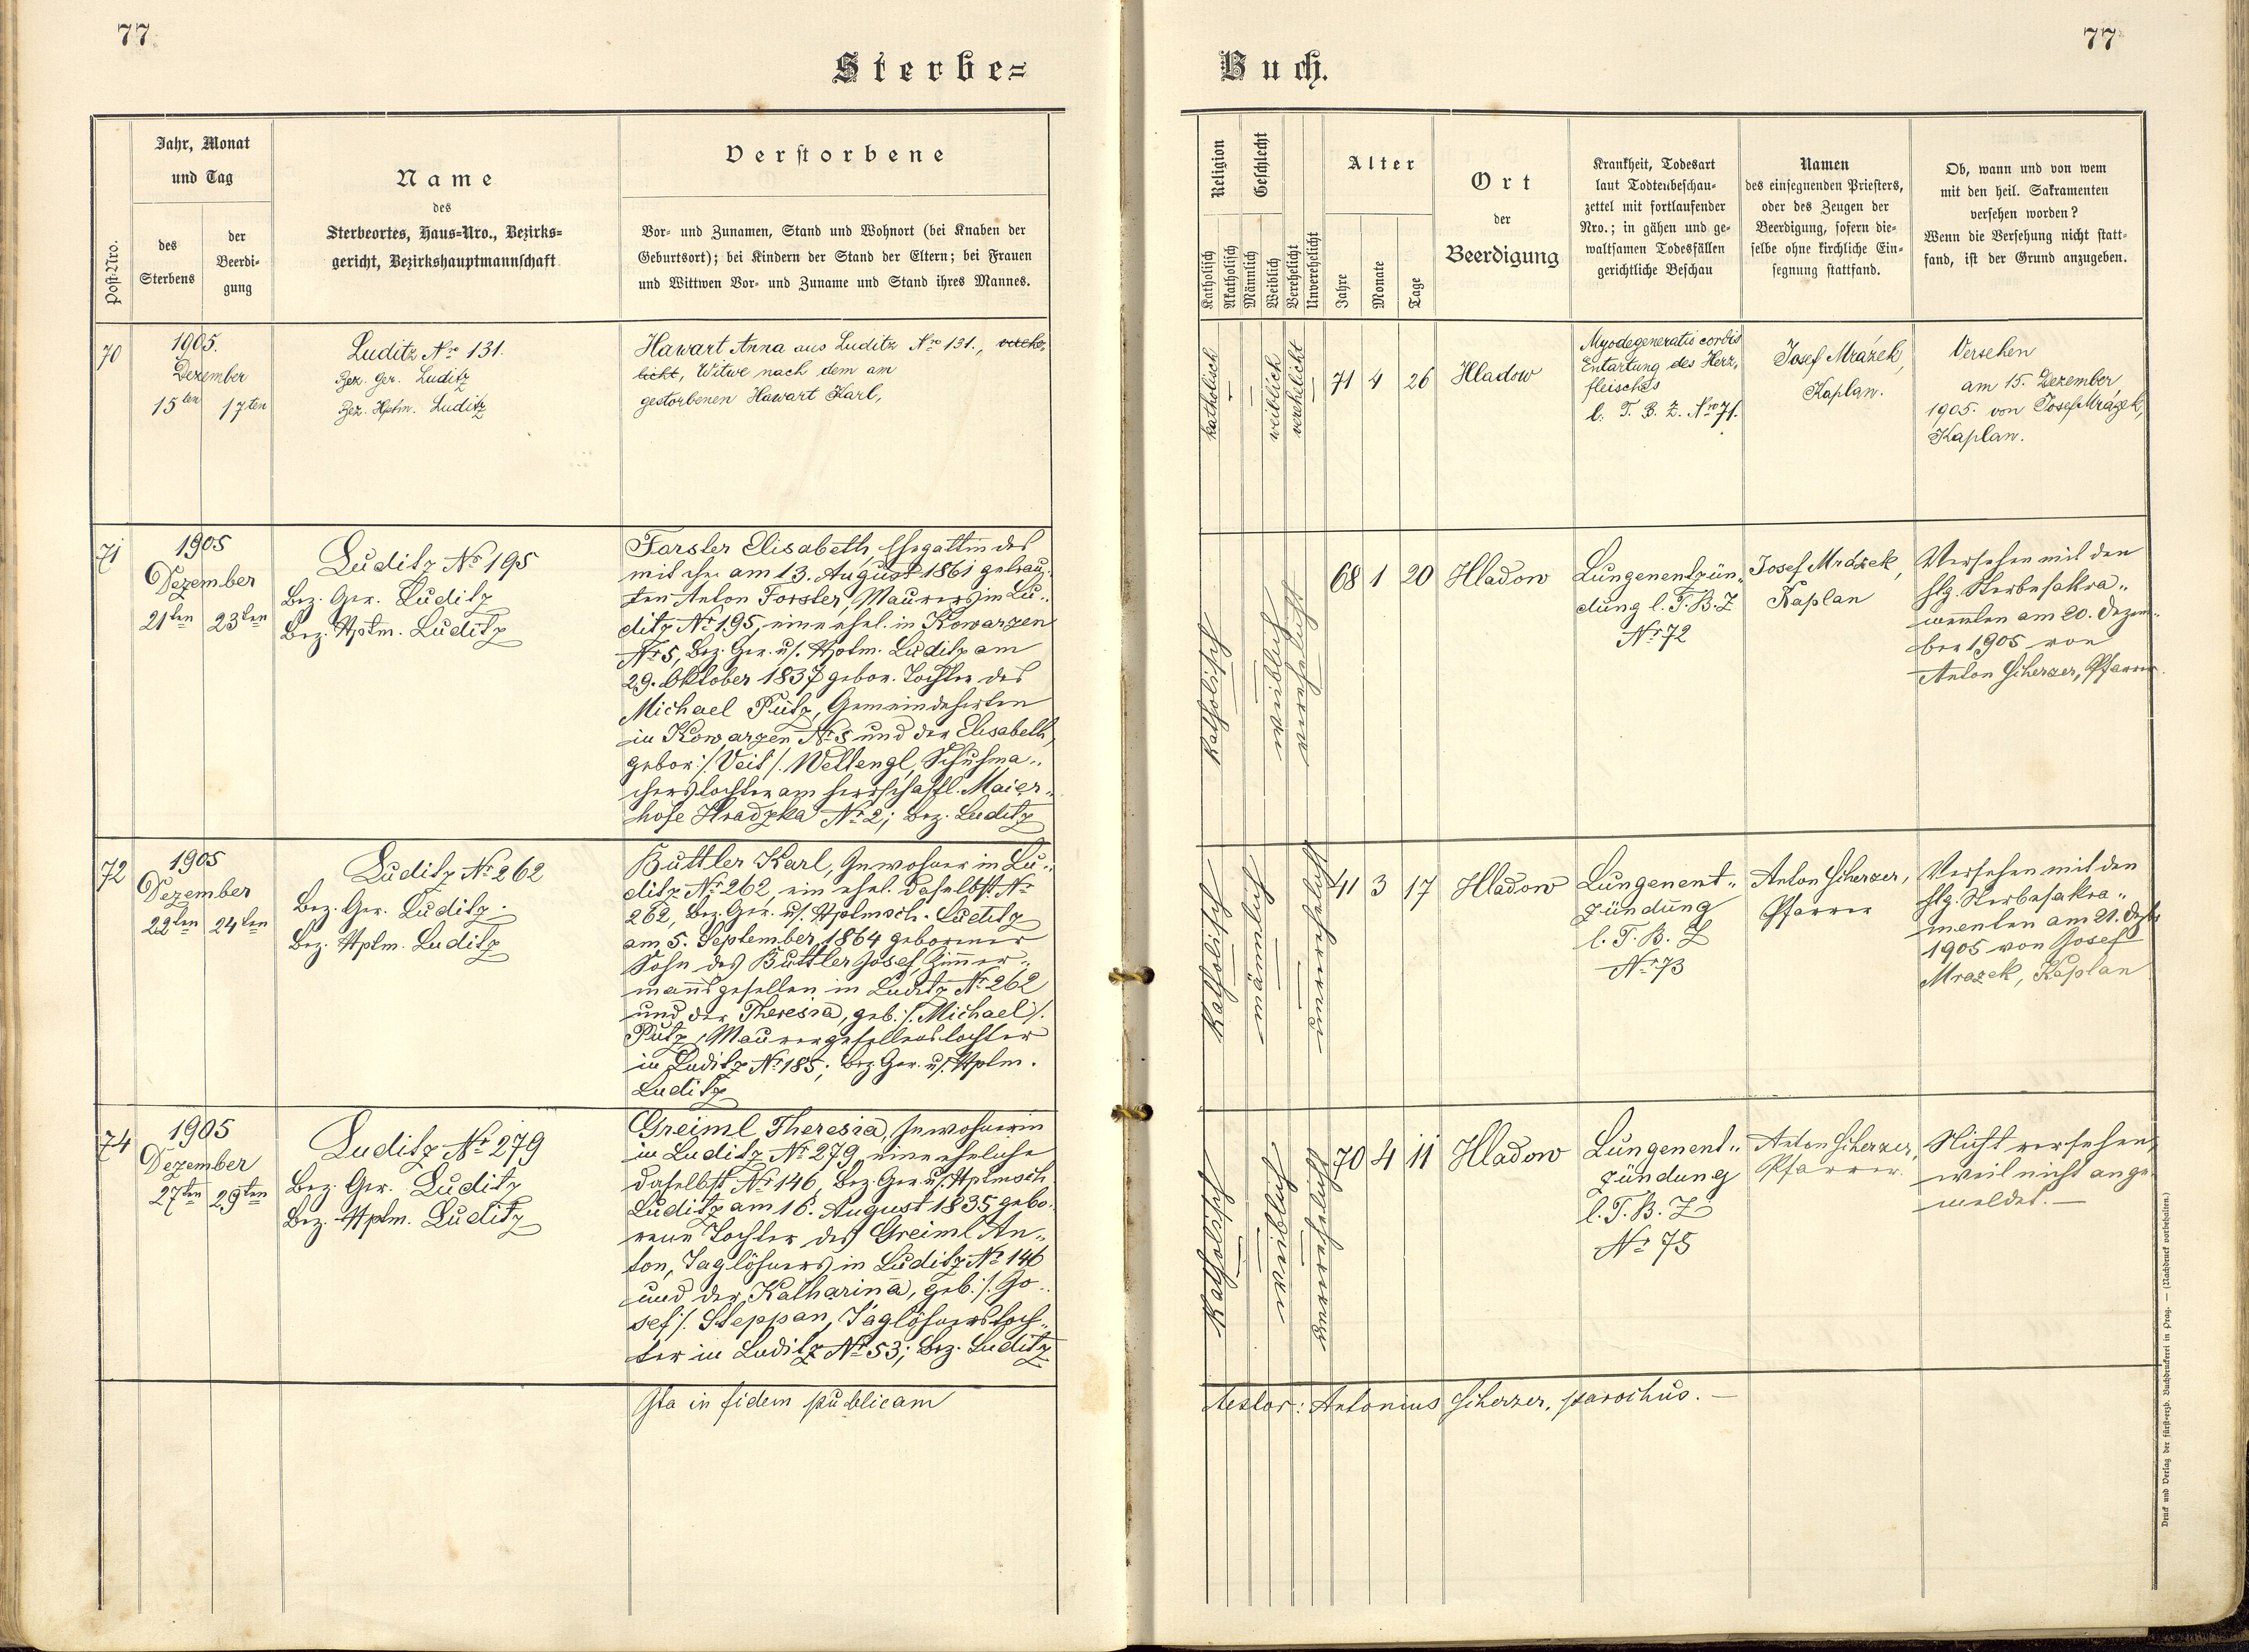 77.
77.
Sterbe=
Buch.
Post-Nro.
Jahr, Monat
und Tag
des
Sterbens
der
Beerdi-
gung
Name
des
Sterbeortes, Haus=Nro., Bezirks=
gericht, Bezirkshauptmannschaft
Verstorbene
Vor- und Zunamen, Stand und Wohnort (bei Knaben der
Geburtsort); bei Kindern der Stand der Eltern; bei Frauen
und Wittwen Vor- und Zuname und Stand ihres Mannes.
Religion
Katholisch
Akatholisch
Geschlecht
Männlich
Weiblich
Verehelicht
Unverehelicht
Alter
Jahre
Monate
Tage
Ort
der
Beerdigung
Krankheit, Todesart
laut Todtenbeschau-
zettel mit fortlaufender
Nro.; in gähen und ge-
waltsamen Todesfällen
gerichtliche Beschau
Namen
des einsegnenden Priesters,
oder des Zeugen der
Beerdigung, sofern die-
selbe ohne kirchliche Ein-
segnung stattfand.
Ob, wann und von wem
mit den heil. Sakramenten
versehen worden?
Wenn die Versehung nicht statt-
fand, ist der Grund anzugeben.
70
1905.
Dezember
15ten 17ten
Luditz No 131.
Bez. Ger. Luditz
Bez. Hptm. Luditz
Hawart Anna aus Luditz Nro 131., verehe,
licht, Witwe nach dem am
gestorbenen Hawart Karl,
katholisch
—
—
weiblich
verehelicht
—
71 4 26
Hladow
Myodegeneratis cordis
Entartung des Herz,
fleisches
l. T. B. Z. Nro 71.
Josef Mrázek,
Kaplan.
Versehen
am 15. Dezember
1905. von Josef Mrázek,
Kaplan.
71
1905
Dezember
21ten 23ten
Luditz No 195
Bez. Ger. Luditz
Bez. Hptm. Luditz
Forster Elisabeth, Ehegattin des
mit ihr am 13. August 1861 getrau-
ten Anton Forster, Maurers in Lu-
ditz No 195, eine ehel. in Kowarzen
No 5, Bez. Ger. u/. Hptm. Luditz am
29. Oktober 1837 gebor. Tochter des
Michael Pütz, Gemeindehirten
in Kowarzen No 5 und der Elisabeth,
gebor: /. Veit /. Weltengl, Schuhma-
cherstochter am herrschaftl. Maier-
hofe Hradzka No 2; Bez. Luditz
katholisch
weiblich
verehelicht
68 1 20
Hladow
Lungenentzün-
dung l. T. B. Z
No 72
Josef Mrázek,
Kaplan
Versehen mit den
hlg. Sterbesakra-
menten am 20. Dezem-
ber 1905 von
Anton Scherzer, Pfarrer
72
1905
Dezember
22ten 24ten
Luditz No 262
Bez. Ger. Luditz.
Bez. Hptm. Luditz
Buttler Karl, Inwohner in Lu-
ditz No 262, ein ehel. daselbst No
262, Bez. Ger. u/. Hptmsch. Luditz
am 5. September 1864 geborener
Sohn des Buttler Josef, Zimmer-
mannsgesellen in Luditz No 262
und der Theresia, geb. /. Michael /.
Pütz, Maurergesellenstochter
in Luditz No 185; Bez. Ger. u/. Hptm.
Luditz
katholisch
männlich
unverehelicht
41 3 17
Hladow
Lungenent-
zündung
l. T. B. Z
No 73
Anton Scherzer,
Pfarrer
Versehen mit den
hlg. Sterbesakra-
menten am 21. Dezb.
1905 von Josef
Mrazek, Kaplan
74
1905
Dezember
27ten 29ten
Luditz No 279
Bez. Ger. Luditz
Bez. Hptm. Luditz
Greiml Theresia, Inwohnerin
in Luditz No 279, eine eheliche
daselbst No 146, Bez. Ger. u/. Hptmsch
Luditz am 16. August 1835 gebo-
rene Tochter des Greiml An-
ton, Taglöhners in Luditz No 146
und der Katharina, geb. /. Jo-
sef /. Steppan, Taglöhnerstoch-
ter in Luditz No 53; Bez. Luditz
katholisch
weiblich
unverehelicht
70 4 11
Hladow
Lungenent-
zündung
l. T. B. Z
No 75
Anton Scherzer,
Pfarrer.
Nicht versehen,
weil nicht ange-
meldet. —
Ita in fidem publicam
testor: Antonius Scherzer, parochus. —
Druck und Verlag der fürst=erzb. Buchdruckerei in Prag. — (Nachdruck vorbehalten.)